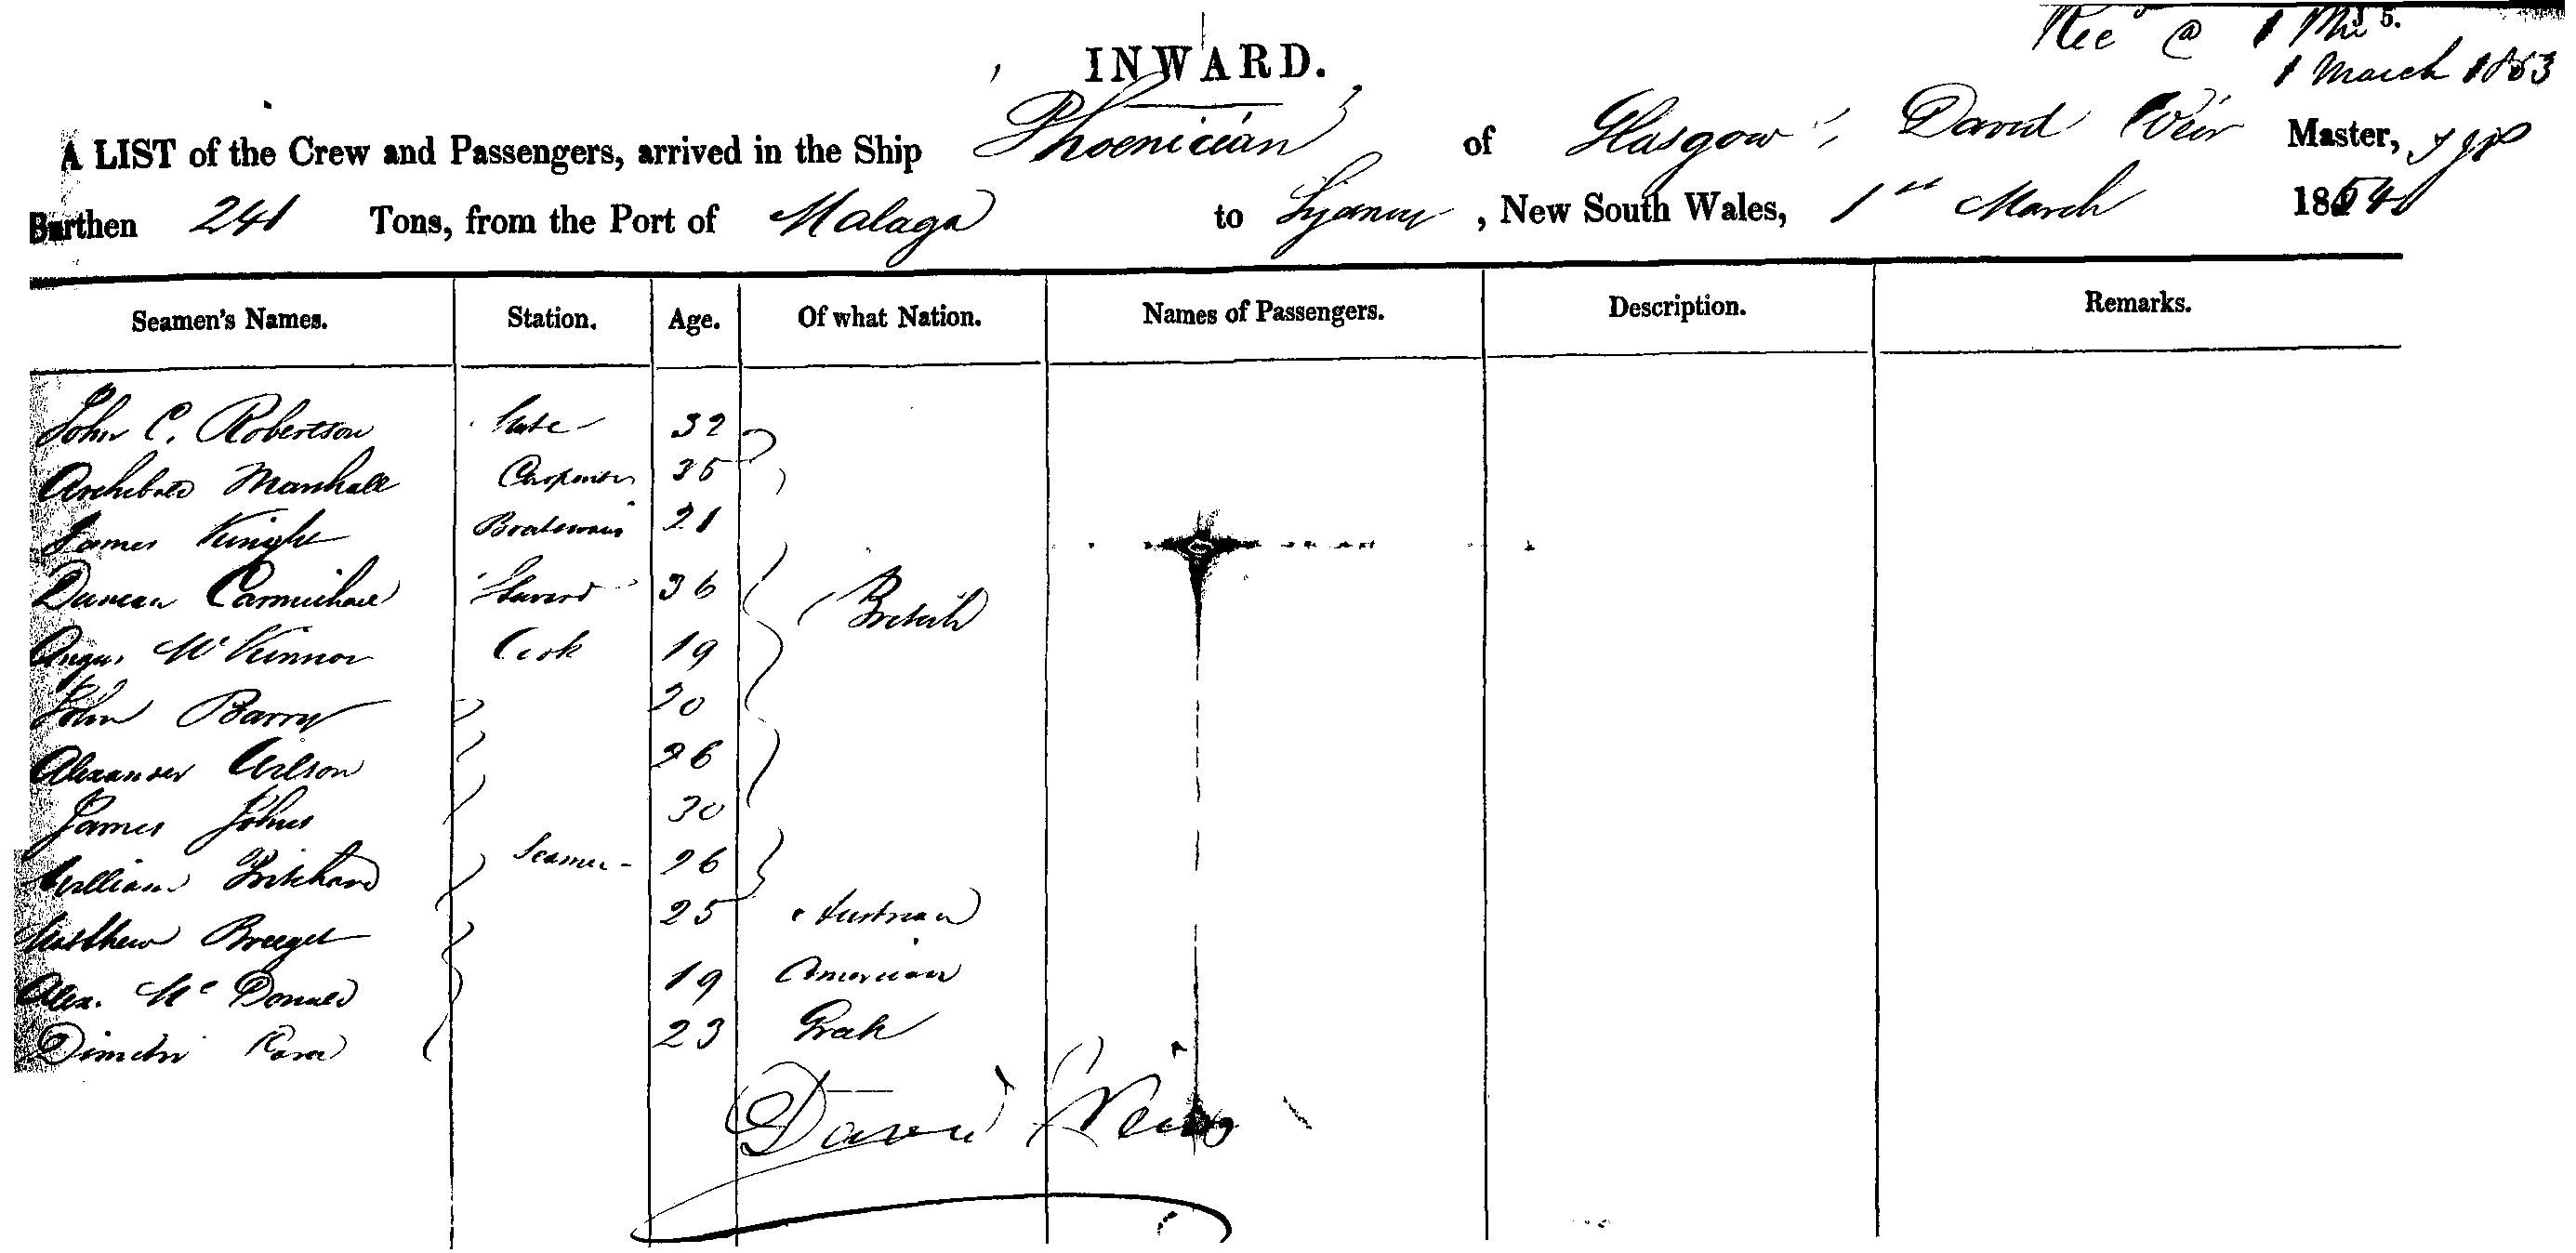 Rec'd @ 1
1 March 1853
INWARD.
A LIST of the Crew and Passengers, arrived in the Ship Phoenician of Glasgow, David Weir Master,
Burthen 241 Tons, from the Port of Malaga to Sydney, New South Wales, 1st March 185
Seamen's Names. Station. Age. Of what Nation. Names of Passengers. Description. Remarks.
John C. Robertson Mate 32
Archibald Marshall Carpenter 35
James Knight Boatswain 21
Duncan Carmichael Steward 36 British
Angus McKinnon Cook 19
John Barry 20
Alexander Wilson 26
James Johns 30
William Pritchard Seamen 26
Matthew 25 Austrian
Alex. McDonald 19 American
Dimitri 23 Greek
David Weir